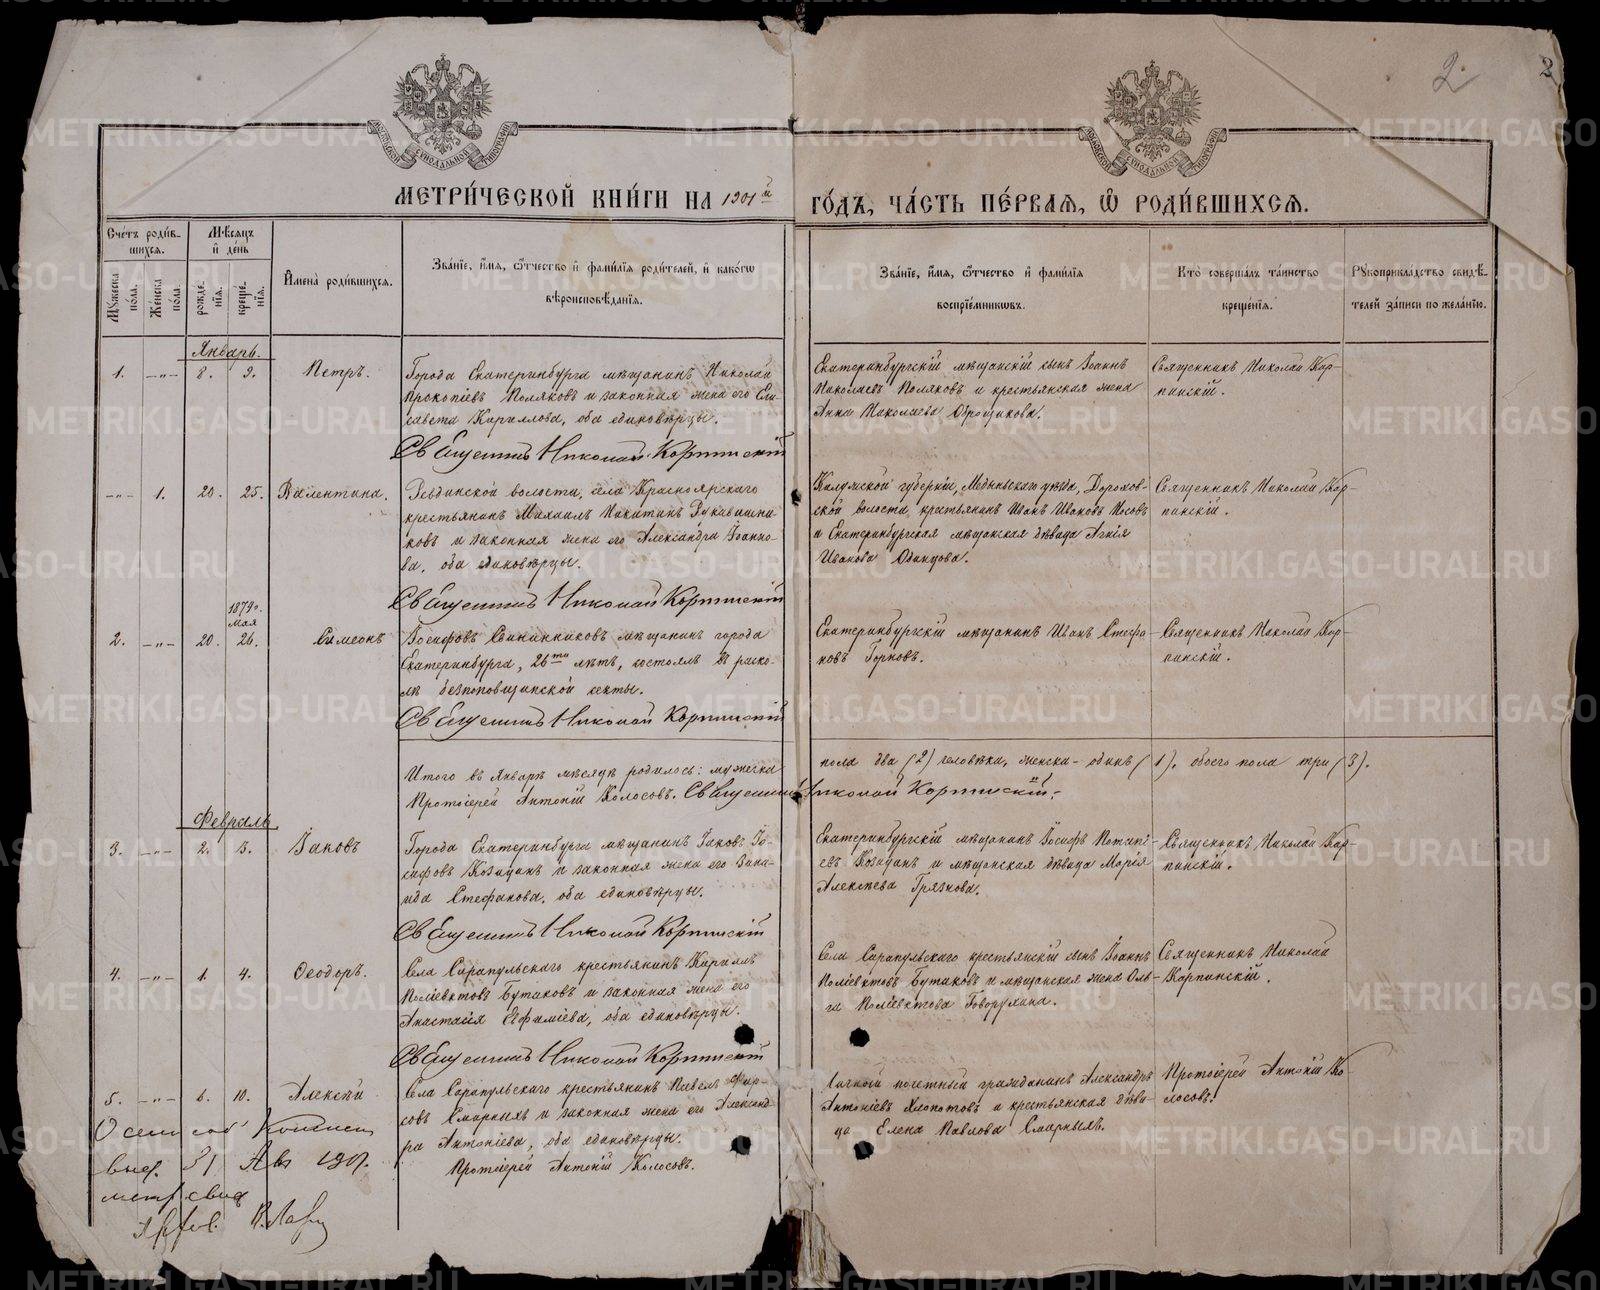 2.
2
МОСКОВСКОЙ СѴНОДАЛЬНОЙ ТИПОГРАФІИ
МОСКОВСКОЙ СѴНОДАЛЬНОЙ ТИПОГРАФІИ
МЕТРИ́ЧЕСКОЙ КНИ́ГИ НА 1901й ГО́ДЪ, ЧА́СТЬ ПЕ́РВАЯ, Ѽ РОДИ́ВШИХСЯ.
Сче́тъ роди́в-
шихся.
Мѣсяцъ
и҆ де́нь
Мꙋжеска по́ла.
Же́нска по́ла.
рожде́-
нїя.
креще́-
нїя.
И҆мена̀ роди́вшихся.
Зва́нїе, и҆́мя, ѻ҆́тчество и҆ фами́лїя роди́телей, и҆ како́гѡ
вѣроисповѣ́данїя.
Зва́нїе, и҆́мя, ѻ҆́тчество и҆ фами́лїя
воспрїе́мниковъ.
Кто̀ соверша́лъ та́инство
креще́нїя.
Рꙋкоприкла́дство свидѣ́-
телей за́писи по жела́нїю.
Январь.
1. -„- 8. 9. Петръ.
Города Екатеринбурга мѣщанинъ Николай
Прокопіевъ Поляковъ и законная жена его Ели-
савета Кириллова, оба единовѣрцы.
Священникъ Николай Корпинскій
Екатеринбургскій мѣщанскій сынъ Іоаннъ
Николаевъ Поляковъ и крестьянская жена
Анна Николаева
Священникъ Николай Кар-
пинскій.
-„- 1. 20. 25. Валентина.
Ревдинской волости, села Красноярскаго
крестьянинъ Михаилъ Никитинъ Рукавишни-
ковъ и законная жена его Александра Іоанно-
ва, оба единовѣрцы.
Священникъ Николай Корпинскій
Калужской губерніи, Медынскаго уѣзда, Дорохов-
ской волости, крестьянинъ Иванъ Ивановъ Носовъ
и Екатеринбургская мѣщанская дѣвица Агнія
Иванова Одинцова.
Священникъ Николай Кар-
пинскій.
1874 г.
мая
2. -„- 20. 26. Симеонъ
Іосифовъ мѣщанинъ города
Екатеринбурга, 26ти лѣтъ, состоялъ въ раско-
лѣ безпоповщинской секты.
Священникъ Николай Корпинскій
Екатеринбургскій мѣщанинъ Иванъ Стефа-
новъ Горновъ.
Священникъ Николай Кар-
пинскій.
Итого въ Январѣ мѣсяцѣ родилось: мужеска
пола два (2) человѣка, женска - одинъ (1). обоего пола три (3).
Протоіерей Антоній Колосовъ. Священникъ Николай Корпинскій.
Февраль
3. -„- 2. 3. Іаковъ
Города Екатеринбурга мѣщанинъ Іаковъ Іо-
сифовъ Козицынъ и законная жена его Зина-
ида Стефанова, оба единовѣрцы.
Священникъ Николай Корпинскій
Екатеринбургскій мѣщанинъ Іосифъ Потапі-
евъ Козицынъ и мѣщанская дѣвица Марія
Алексѣева Грязнова.
Священникъ Николай Кар-
пинскій.
4. -„- 1. 4. Ѳеодоръ.
Села Сарапульскаго крестьянинъ Кириллъ
Поліевктовъ Бутаковъ и законная жена его
Анастасія Евфиміева, оба единовѣрцы.
Священникъ Николай Корпинскій
Села Сарапульскаго крестьянскій сынъ Іоаннъ
Поліевктовъ Бутаковъ и мѣщанская жена Оль-
га Поліевктова Говорухина.
Священникъ Николай
Карпинскій.
5. -„- 6. 10. Алексѣй
Села Сарапульскаго крестьянинъ Павелъ Фир-
совъ Смарныхъ и законная жена его Александ-
ра Антоніева, оба единовѣрцы.
Протоіерей Антоній Колосовъ.
Личный почетный гражданинъ Александръ
Антоніевъ Хлопотовъ и крестьянская дѣви-
ца Елена Павлова Смарныхъ.
Протоіерей Антоній Ко-
лосовъ.
31 Авг 1907.
метр. свид
METRIKI.GASO-URAL.RU